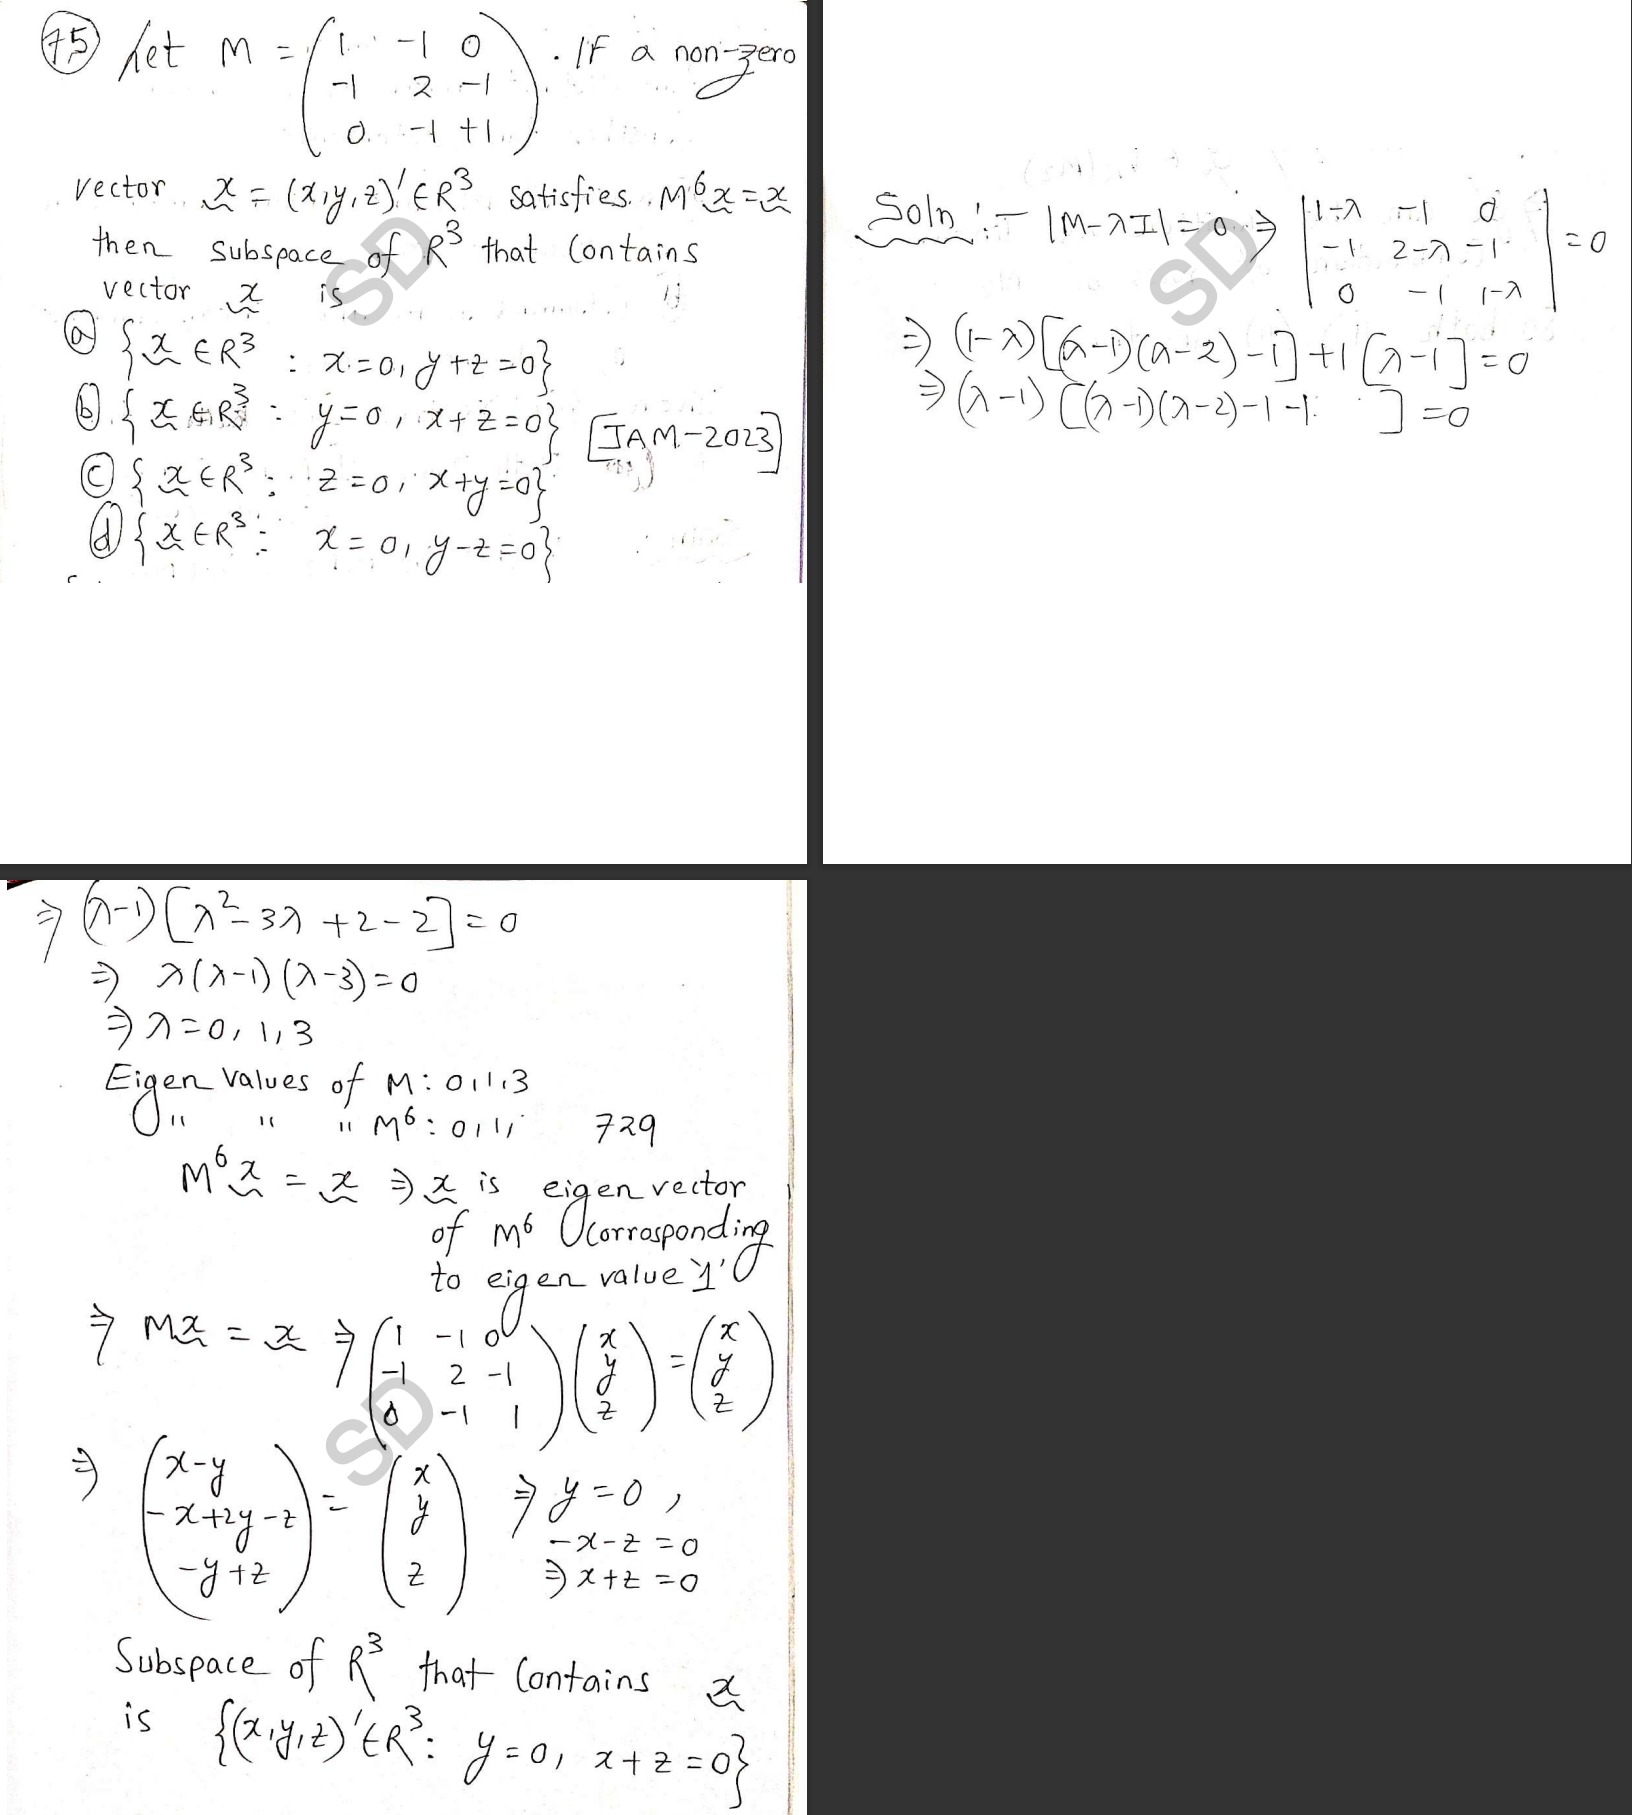 75 Let M = (1 -1 0
-1 2 -1
0 -1 +1) . If a non-zero
vector x = (x,y,z)' ∈ R³ satisfies M⁶x = x
then subspace of R³ that contains
vector x is
(a) {x ∈ R³ : x=0, y+z=0}
(b) {x ∈ R³ : y=0, x+z=0} [JAM-2023]
(c) {x ∈ R³ : z=0, x+y=0}
(d) {x ∈ R³ : x=0, y-z=0}
SD
Soln :- |M-λI| = 0 ⇒ |1-λ -1 0
-1 2-λ -1
0 -1 1-λ| = 0
⇒ (1-λ)[(λ-1)(λ-2)-1]+1[λ-1]=0
⇒ (λ-1)[(λ-1)(λ-2)-1-1 ]=0
SD
⇒ (λ-1)[λ²-3λ+2-2]=0
⇒ λ(λ-1)(λ-3)=0
⇒ λ=0,1,3
Eigen values of M: 0,1,3
" " " M⁶: 0,1, 729
M⁶x = x ⇒ x is eigen vector
of M⁶ corrosponding
to eigen value '1'
⇒ Mx = x ⇒ (1 -1 0
-1 2 -1
0 -1 1) (x
y
z) = (x
y
z)
SD
⇒ (x-y
-x+2y-z
-y+z) = (x
y
z) ⇒ y=0,
-x-z=0
⇒ x+z=0
Subspace of R³ that contains x
is {(x,y,z)' ∈ R³: y=0, x+z=0}